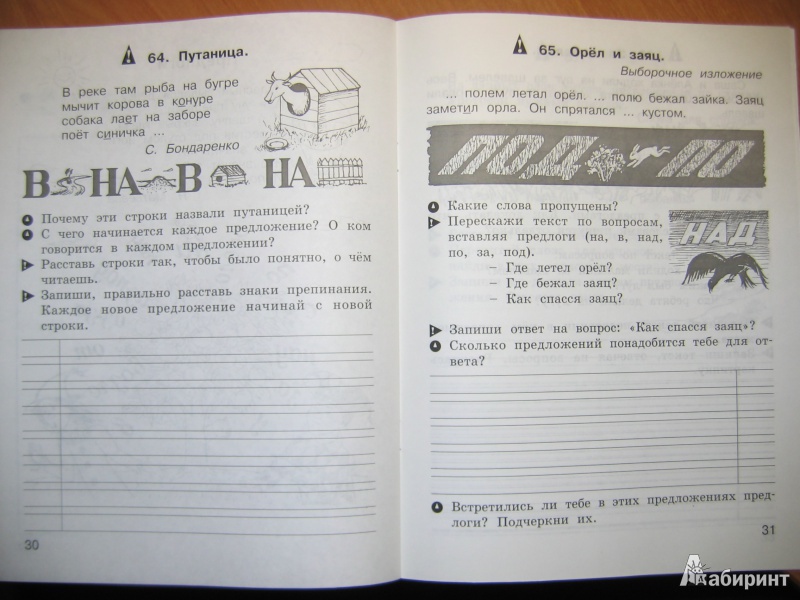 64. Путаница.
В реке там рыба на бугре
мычит корова в конуре
собака лает на заборе
поёт синичка ...
С. Бондаренко
В НА В НА
Почему эти строки назвали путаницей?
С чего начинается каждое предложение? О ком
говорится в каждом предложении?
Расставь строки так, чтобы было понятно, о чём
читаешь.
Запиши, правильно расставь знаки препинания.
Каждое новое предложение начинай с новой
строки.
30
65. Орёл и заяц.
Выборочное изложение
... полем летал орёл. ... полю бежал зайка. Заяц
заметил орла. Он спрятался ... кустом.
ПОД ПО
Какие слова пропущены?
Перескажи текст по вопросам,
вставляя предлоги (на, в, над,
по, за, под).
– Где летел орёл?
– Где бежал заяц?
– Как спасся заяц?
НАД
Запиши ответ на вопрос: «Как спасся заяц?»
Сколько предложений понадобится тебе для от-
вета?
Встретились ли тебе в этих предложениях пред-
логи? Подчеркни их.
31
Лабиринт